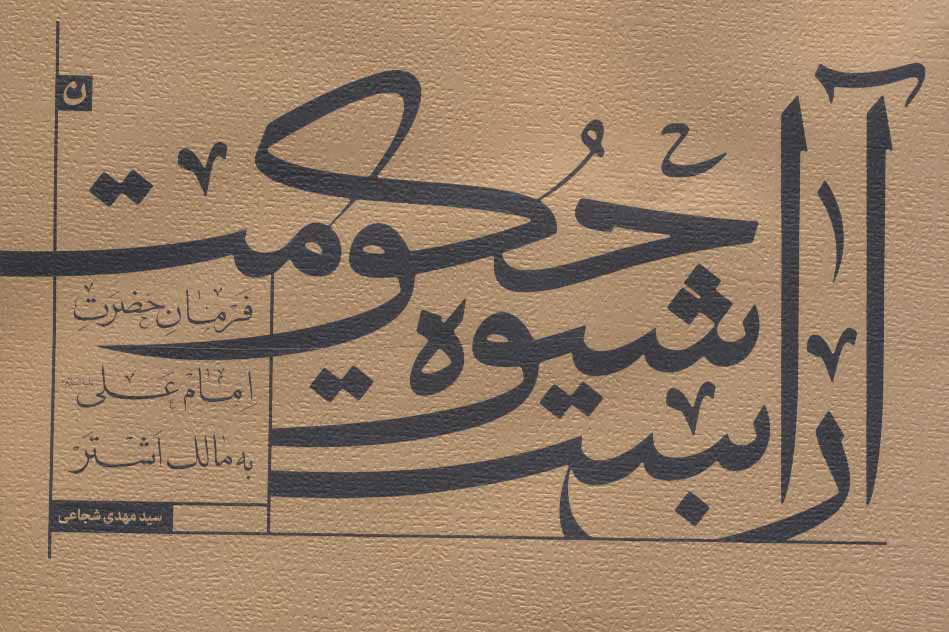 شیوه
حکومت
فرمان حضرت
امام علی
به مالک اشتر
سید مهدی شجاعی